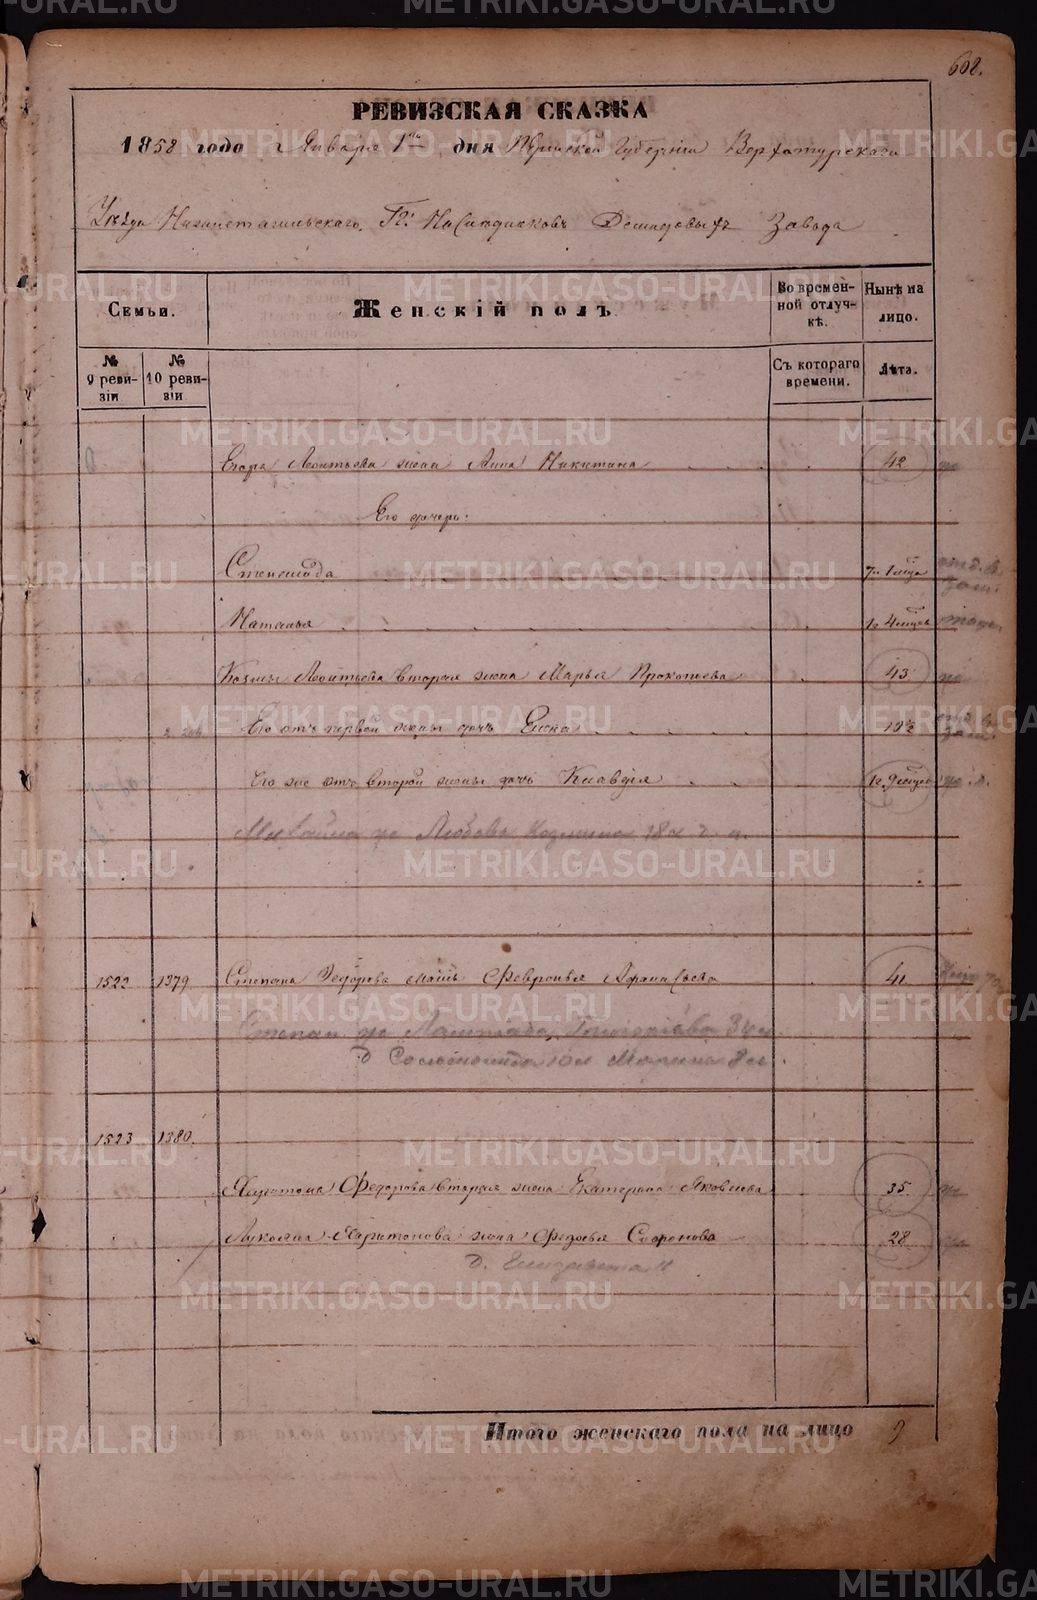 608.
РЕВИЗСКАЯ СКАЗКА
1858 года Января 1го дня Пермской Губерніи Верхотурскаго
Уѣзда Нижнетагильскаго Гг. Наслѣдниковъ Демидовыхъ Завода
Семьи.
Женскій полъ.
Во временной отлучкѣ.
Нынѣ на лицо.
№ 9 ревизіи
№ 10 ревизіи
Съ котораго времени.
Лѣта.
Егора Леонтьева жена Анна Никитина 42
Его дочери:
Степанида
Наталья 1г. 4 мцев
Козмы Леонтьева вторая жена Марья Прокопьева 43
Его отъ первой жены дочь
Его же отъ второй жены дочь Клавдія 1г. 9 мцев
Михайла Любовь Козмина
1522 1379 Степана Федорова мать Февронья Афанасьева 41
Степан
Марина
1523 1380.
Харитона Федорова вторая жена Екатерина Яковлева 35.
Лукояна Харитонова жена Федосья Софронова 28
д. Елизавета
Итого женскаго пола на лицо 9
METRIKI.GASO-URAL.RU